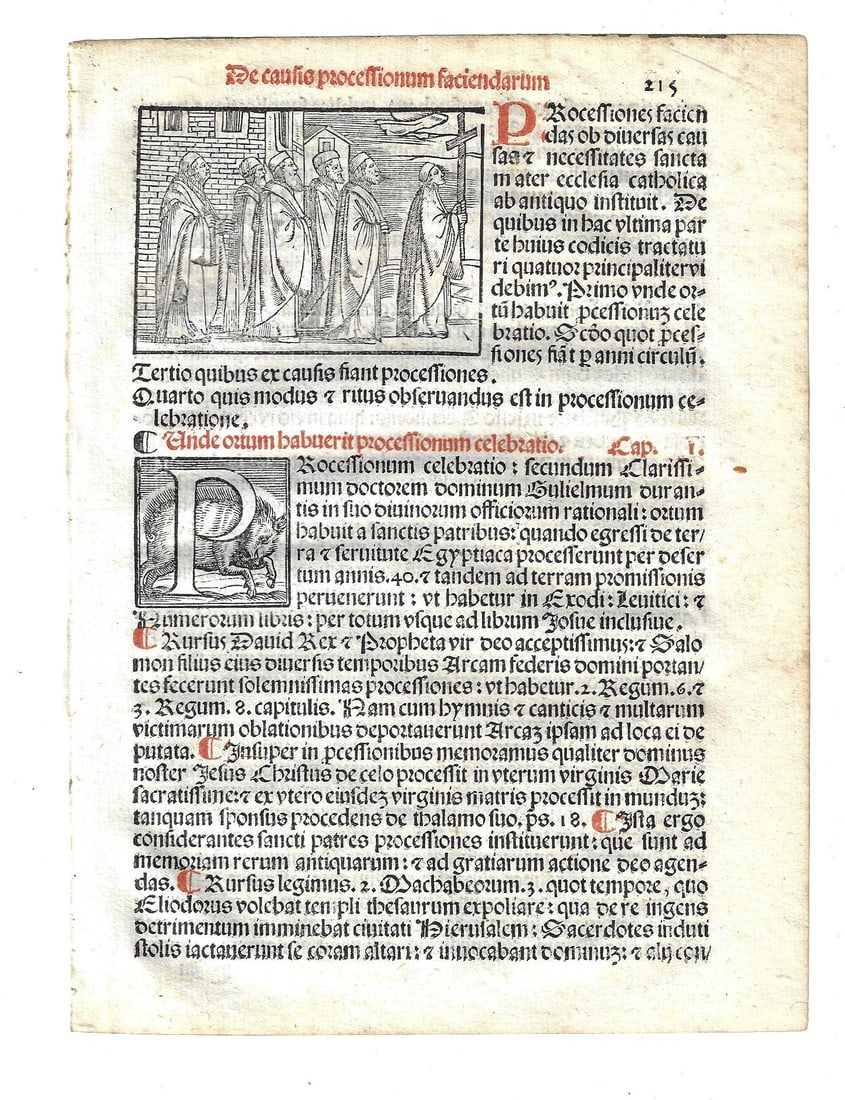 De causis processionum faciendarum
215
PRocessiones facien
das ob diuersas cau
sas ⁊ necessitates sancta
mater ecclesia catholica
ab antiquo instituit. De
quibus in hac vltima par
te huius codicis tractatu
ri quatuor principaliter vi
debimꝰ. Primo vnde or-
tū habuit ꝓcessionuꝫ cele
bratio. Scḋo quot ꝓces-
siones fiāt ꝑ anni circulū.
Tertio quibus ex causis fiant processiones.
Quarto quis modus ⁊ ritus obseruandus est in processionum ce-
lebratione.
¶ Unde ortum habuerit processionum celebratio. Cap. i.
PRocessionum celebratio : secundum Clarissi-
mum doctorem dominum Gulielmum duran-
tis in suo diuinorum officiorum rationali : ortum
habuit a sanctis patribus : quando egressi de ter/
ra ⁊ seruitute Egyptiaca processerunt per deser
tum annis .40. ⁊ tandem ad terram promissionis
peruenerunt : vt habetur in Exodi : Leuitici : ⁊
Numerorum libris : per totum vsque ad librum Josue inclusiue.
¶ Rursus Dauid Rex ⁊ Propheta vir deo acceptissimus: ⁊ Salo
mon filius eius diuersis temporibus Arcam federis domini portan/
tes fecerunt solemnissimas processiones : vt habetur .2. Regum .6. ⁊
3. Regum. 8. capitulis. Nam cum hymnis ⁊ canticis ⁊ multarum
victimarum oblationibus deportauerunt Arcaꝫ ipsam ad loca ei de
putata. ¶ Insuper in ꝓcessionibus memoramus qualiter dominus
noster Jesus Christus de celo processit in vterum virginis Marie
sacratissime: ⁊ ex vtero eiusdeꝫ virginis matris processit in munduꝫ:
tanquam sponsus procedens de thalamo suo. p̄s. 18. ¶ Ista ergo
considerantes sancti patres processiones instituerunt : que sunt ad
memoriam rerum antiquarum : ⁊ ad gratiarum actione deo agen-
das. ¶ Rursus legimus. 2. Machabeorum .3. quot tempore, quo
Eliodorus volebat templi thesaurum expoliare : qua de re ingens
detrimentum imminebat ciuitati Hierusalem : Sacerdotes induti
stolis iactauerunt se coram altari : ⁊ inuocabant dominuꝫ : ⁊ alij con/